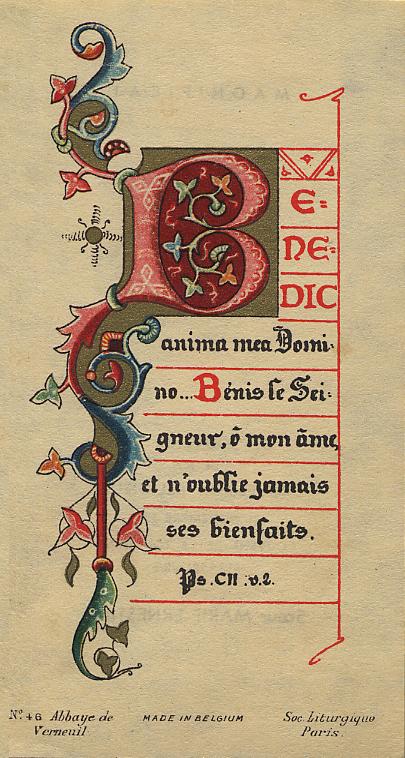 BE=
NE=
DIC
anima mea Domi-
no... Bénis le Sei-
gneur, ô mon âme,
et n'oublie jamais
ses bienfaits.
Ps. CII .v.2.
No. 46 Abbaye de Verneuil
MADE IN BELGIUM
Soc. Liturgique Paris.